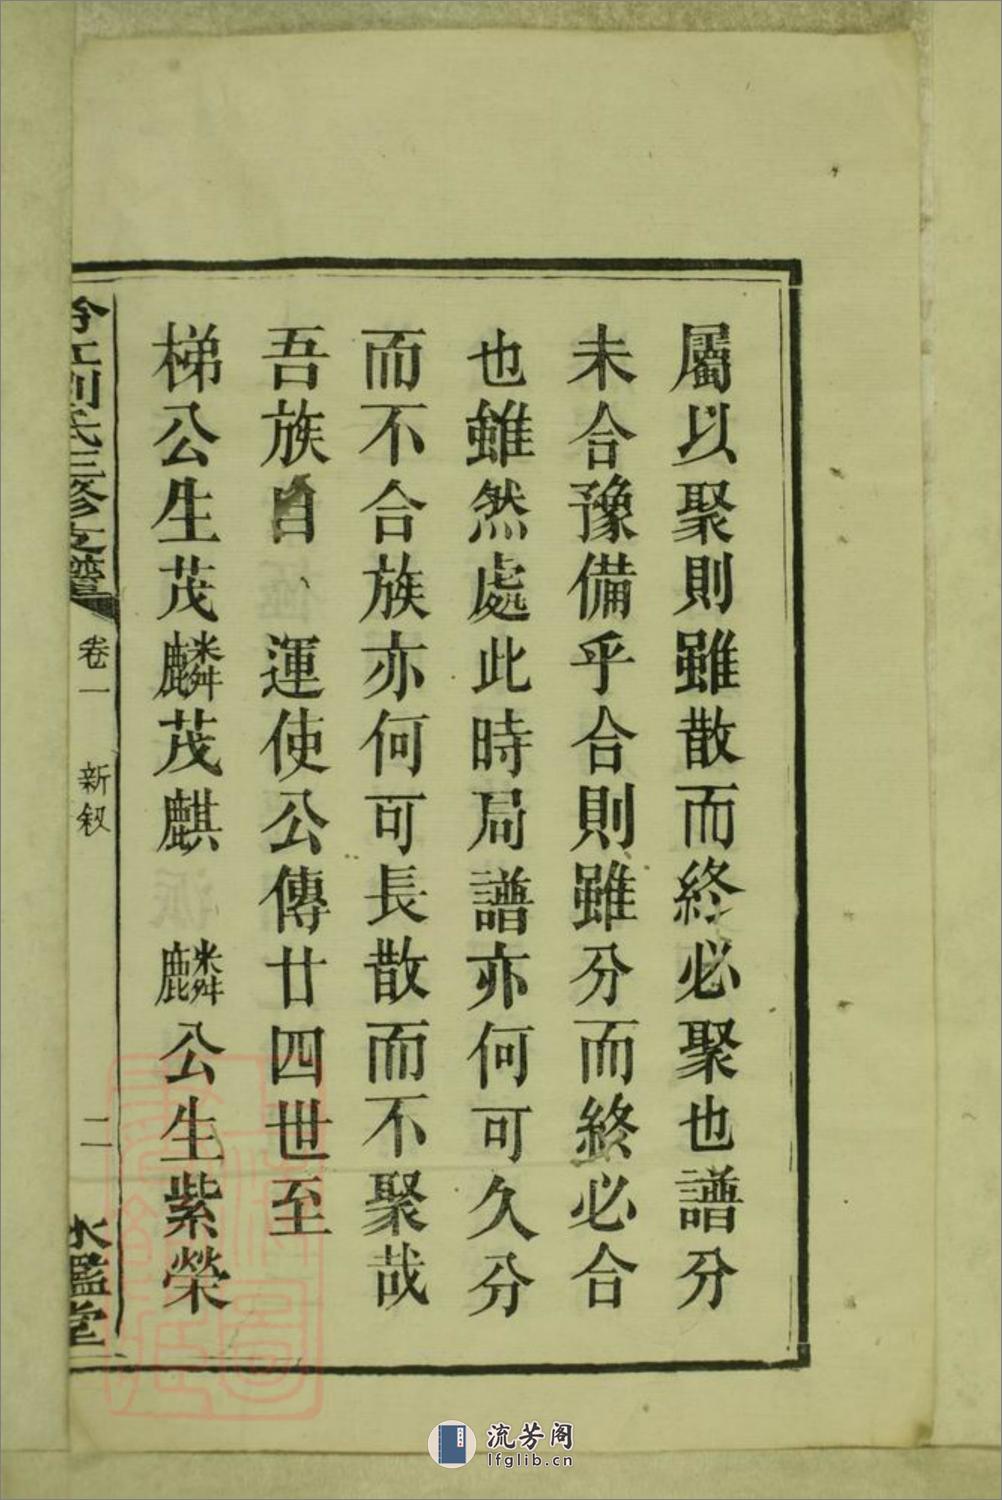 屬以聚則雖散而終必聚也譜分
未合豫備乎合則雖分而終必合
也雖然處此時局譜亦何可久分
而不合族亦何可長散而不聚哉
吾族自 運使公傳廿四世至
梯公生茂麟茂麒 麟公生紫榮
江劉氏三修支譜 卷一 新敘 二 水鑑堂
流芳阁
lfglib.cn